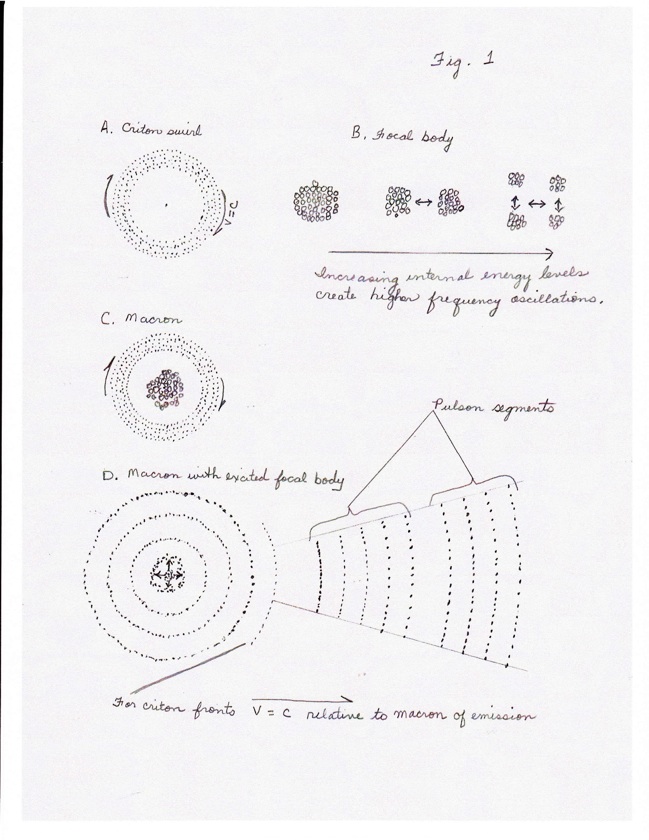 Fig. 1
A. Criton swirl
B. Focal body
V=C
Increasing internal energy levels
create higher frequency oscillations.
C. Macron
Pulson segments
D. Macron with excited focal body
For criton fronts V = C relative to macron of emission